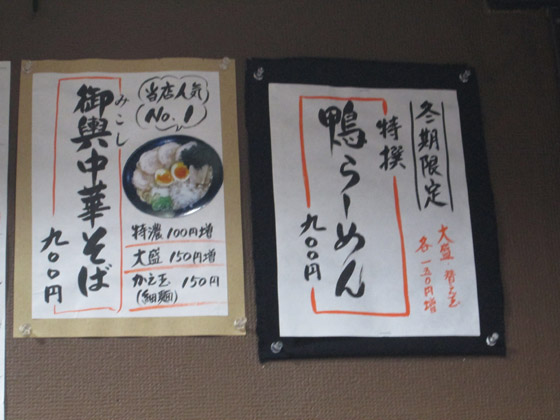 当店人気
No.1
御輿中華そば
みこし
九〇〇円
特濃 100円増
大盛 150円増
かえ玉 150円
(細麺)
冬期限定
特撰
鴨らーめん
九〇〇円
大盛 替え玉
各一五〇円増